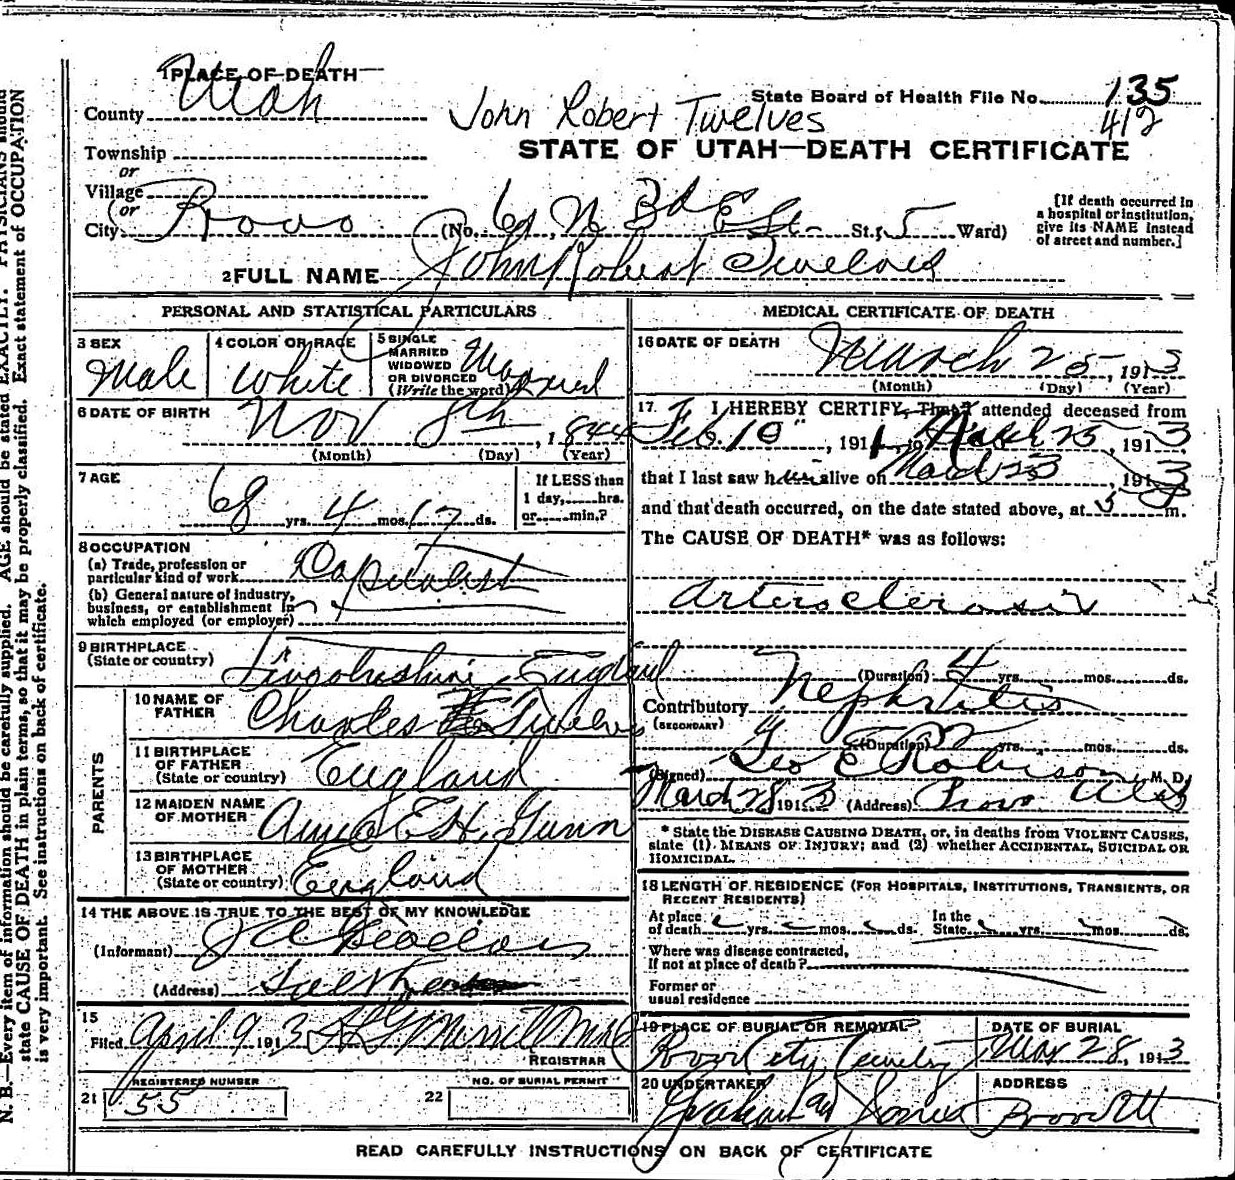 1 PLACE OF DEATH
County Utah
State Board of Health File No. 135
412
John Robert Twelves
STATE OF UTAH—DEATH CERTIFICATE
Township
or
Village
(or
City Provo (No. 61 N 3d E St. St.; 5 Ward)
[If death occurred in
a hospital or institution,
give its NAME instead
of street and number.]
2 FULL NAME John Robert Twelves
PERSONAL AND STATISTICAL PARTICULARS
3 SEX
Male
4 COLOR OR RACE
White
5 SINGLE
MARRIED
WIDOWED
OR DIVORCED
(Write the word)
Married
6 DATE OF BIRTH
Nov 8th, 1844
(Month) (Day) (Year)
7 AGE
68 yrs. 4 mos. 17 ds.
If LESS than
1 day, hrs.
or min.?
8 OCCUPATION
(a) Trade, profession or
particular kind of work Capitalist
(b) General nature of industry,
business, or establishment in
which employed (or employer)
9 BIRTHPLACE
(State or country) Lincolnshire, England
PARENTS
10 NAME OF
FATHER Charles Twelves
11 BIRTHPLACE
OF FATHER
(State or country) England
12 MAIDEN NAME
OF MOTHER E H. Gunn
13 BIRTHPLACE
OF MOTHER
(State or country) England
14 THE ABOVE IS TRUE TO THE BEST OF MY KNOWLEDGE
(Informant) J
(Address)
15
Filed April 9 1913 Merrill
REGISTRAR
REGISTERED NUMBER
21 55
NO. OF BURIAL PERMIT
22
MEDICAL CERTIFICATE OF DEATH
16 DATE OF DEATH
March 25, 1913
(Month) (Day) (Year)
17. I HEREBY CERTIFY, That I attended deceased from
Feb. 10", 1911, to March 25, 1913
that I last saw him alive on March 23, 1913
and that death occurred, on the date stated above, at 5 m.
The CAUSE OF DEATH* was as follows:
Arterosclerosis
(Duration) 4 yrs. mos. ds.
Contributory Nephritis
(SECONDARY)
(Duration) 2 yrs. mos. ds.
(Signed) Geo E Robison M. D.
March 28 1913 (Address) Provo Utah
* State the DISEASE CAUSING DEATH, or, in deaths from VIOLENT CAUSES,
state (1) MEANS OF INJURY; and (2) whether ACCIDENTAL, SUICIDAL OR
HOMICIDAL.
18 LENGTH OF RESIDENCE (FOR HOSPITALS, INSTITUTIONS, TRANSIENTS, OR
RECENT RESIDENTS)
At place
of death yrs. mos. ds.
In the
State yrs. mos. ds.
Where was disease contracted,
If not at place of death?
Former or
usual residence
19 PLACE OF BURIAL OR REMOVAL
Provo City Cemetery
DATE OF BURIAL
Mar 28, 1913
20 UNDERTAKER
Graham and Jones
ADDRESS
Provo Ut
READ CAREFULLY INSTRUCTIONS ON BACK OF CERTIFICATE
N. B.—Every item of information should be carefully supplied. AGE should be stated EXACTLY. PHYSICIANS should
state CAUSE OF DEATH in plain terms, so that it may be properly classified. Exact statement of OCCUPATION
is very important. See instructions on back of certificate.